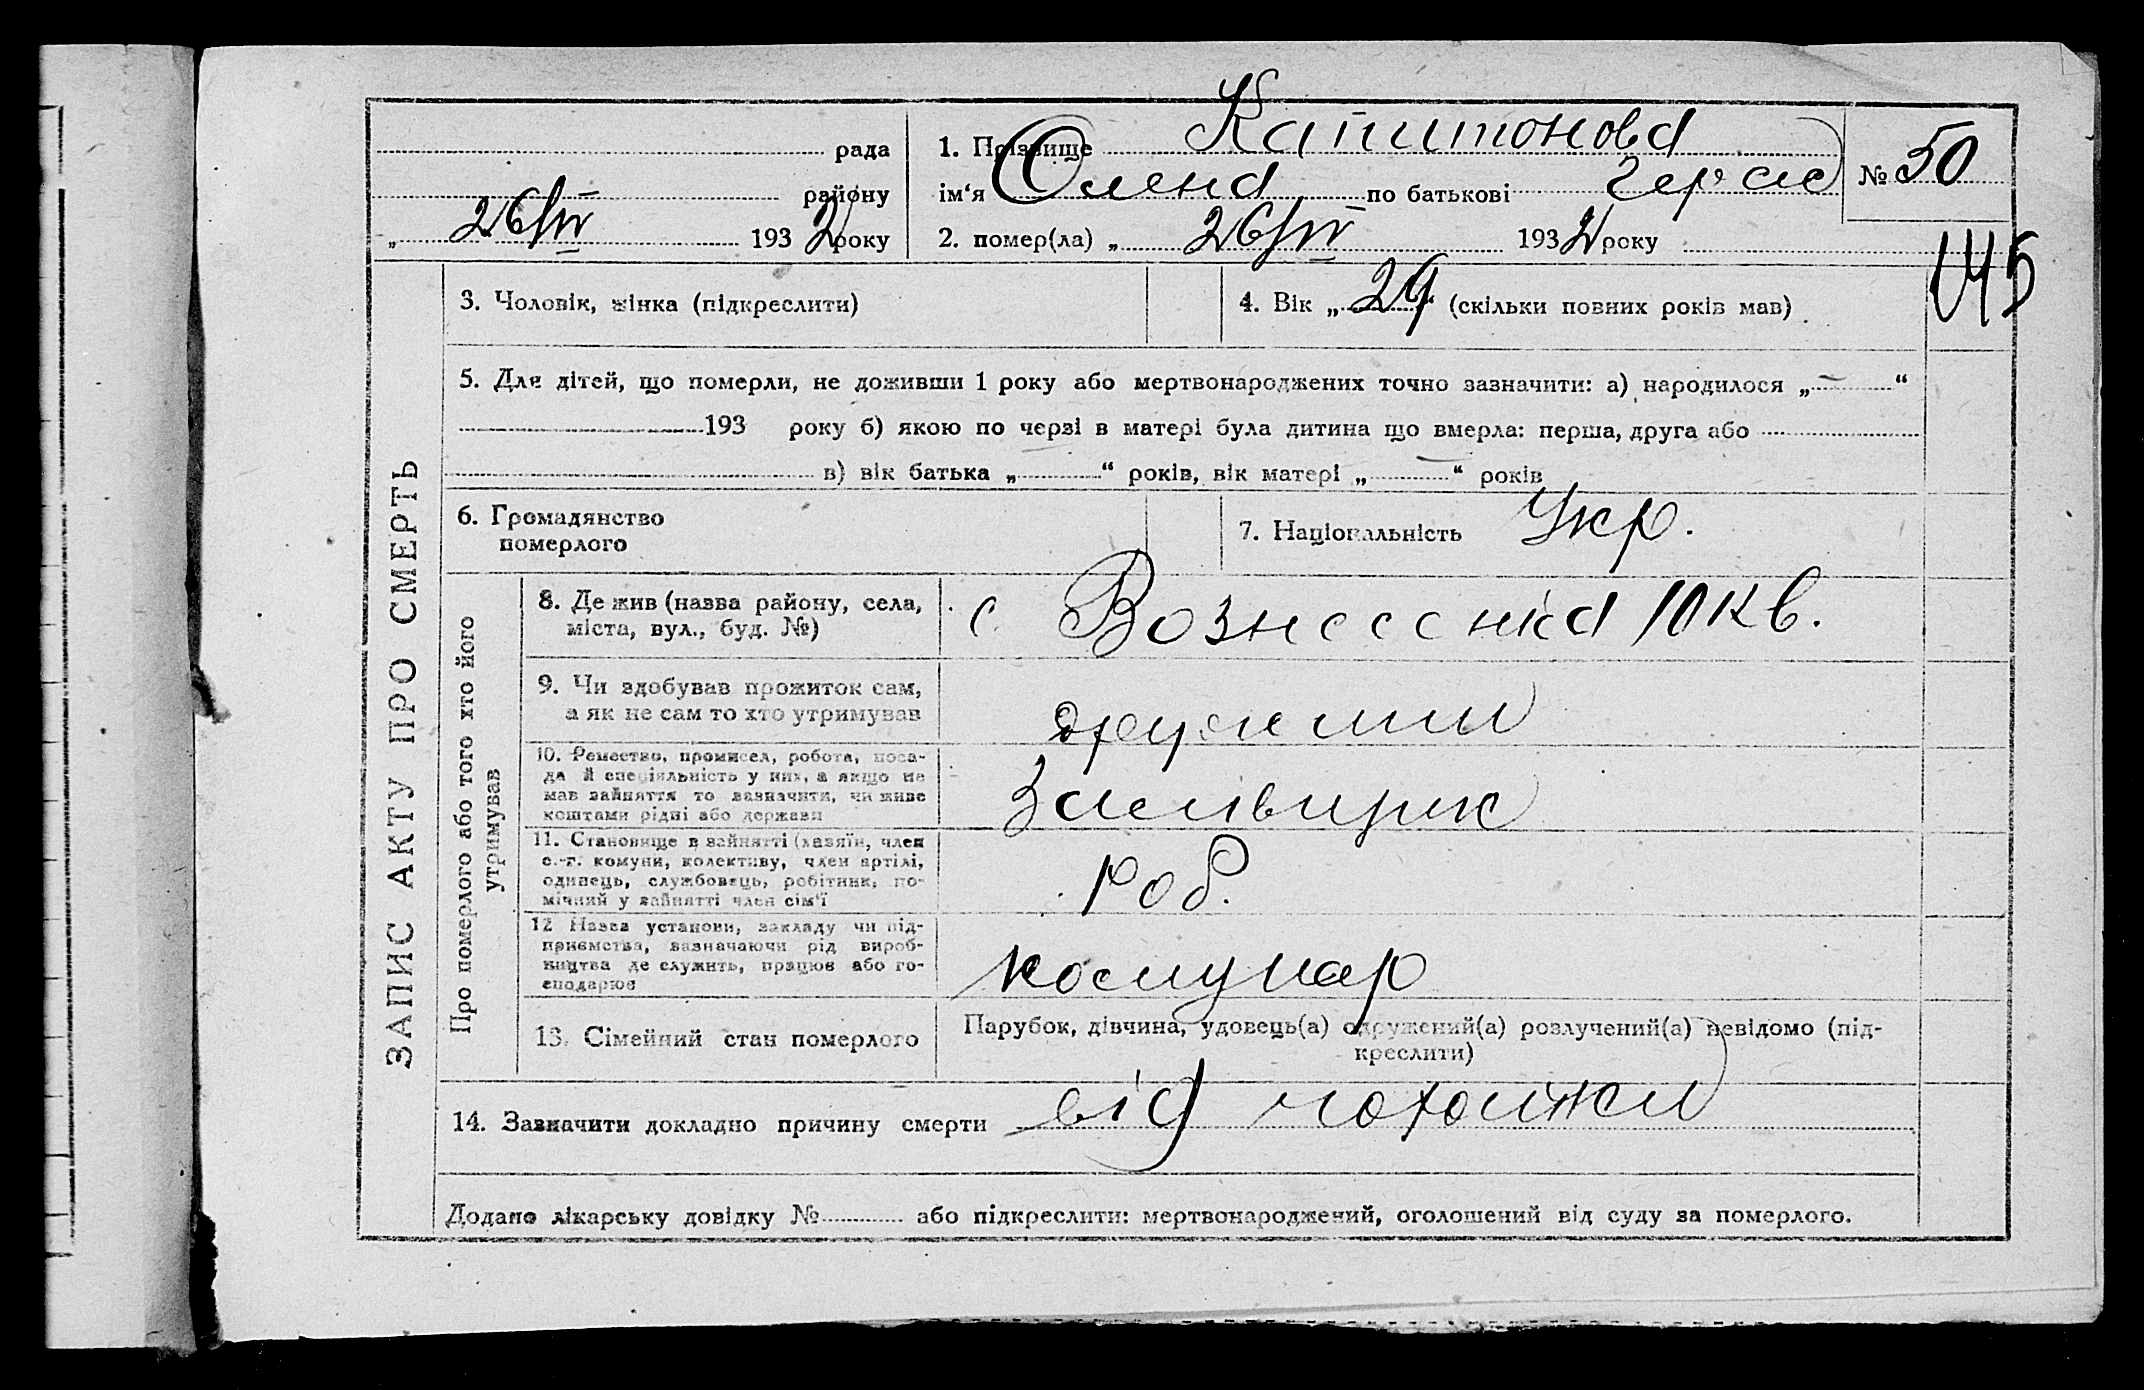 рада
району
„ 26/IV 1932 року
1. Прізвище Капитонова
ім‘я Олена по батькові Герас
2. помер(ла) „ 26/IV 1932 року
№ 50
145
ЗАПИС АКТУ ПРО СМЕРТЬ
3. Чоловік, жінка (підкреслити)
4. Вік „ 29 (скільки повних років мав)
5. Для дітей, що померли, не доживши 1 року або мертвонароджених точно зазначити: а) народилося „ “
193 року б) якою по черзі в матері була дитина що вмерла: перша, друга або
в) вік батька „ “ років, вік матері „ “ років
6. Громадянство
померлого
7. Національність Укр.
Про померлого або того хто його
утримував
8. Де жив (назва району, села,
міста, вул., буд. №)
с. Вознесенка 10 кв.
9. Чи здобував прожиток сам,
а як не сам то хто утримував
10. Ремество, промисел, робота, поса-
да й спеціяльність у них, а якщо не
мав зайняття то зазначити, чи живе
коштами рідні або держави
Заливщик
11. Становище в зайнятті (хазяїн, член
с.-г. комуни, колективу, член артілі,
одинець, службовець, робітник, по-
мічний у зайнятті член сім‘ї
роб.
12 Назва установи, закладу чи під-
приємства, зазначаючи рід вироб-
ництва де служить, працює або го-
сподарює
комунар
13. Сімейний стан померлого
Парубок, дівчина, удовець(а) одружений(а) розлучений(а) невідомо (під-
креслити)
14. Зазначити докладно причину смерти від
Додано лікарську довідку № або підкреслити: мертвонароджений, оголошений від суду за померлого.